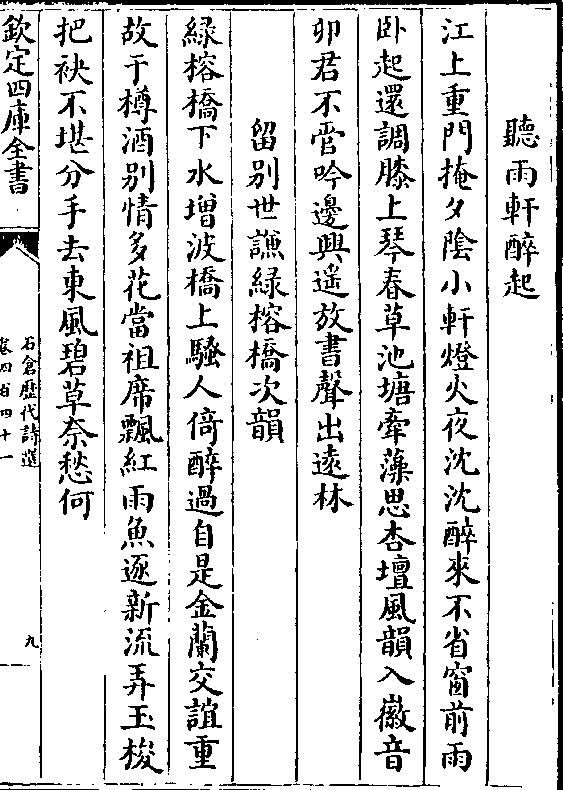 聽雨軒醉起
江上重門掩夕陰小軒燈火夜沈沈醉來不省窗前雨
卧起還調膝上琴春草池塘牽藻思杏壇風韻入徽音
卯君不管吟邊興遥放書聲出遠林
留别世謙緑榕橋次韻
緑榕橋下水增波橋上騷人倚醉過自是金蘭交誼重
故于樽酒别情多花當祖席飄紅雨魚逐新流弄玉梭
把袂不堪分手去東風碧草奈愁何
欽定四庫全書
石倉歷代詩選
卷四百四十一
九